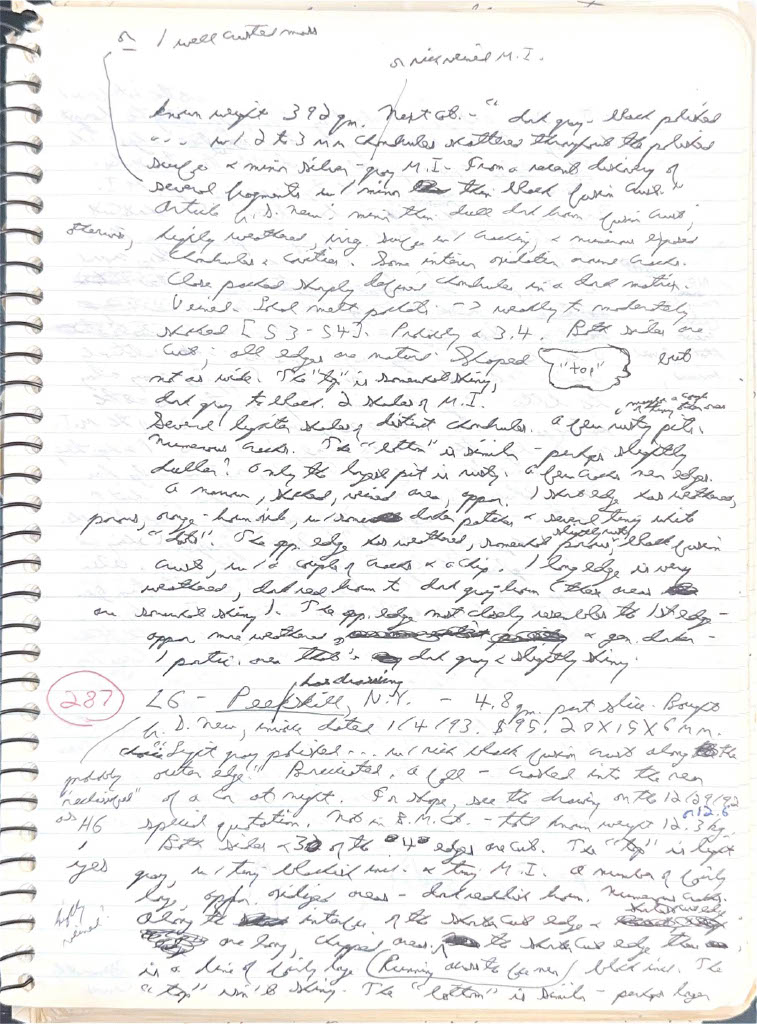 or 1 well crusted mass
or nick veined M.I.
known weight 392 gm. Next cat. - " dark gray - black polished
... w/ 2 to 3 mm chondrules scattered throughout the polished
surface & minor silver-gray M.I. From a recent discovery of
several fragments w/ minor thin black fusion crust."
Article by D. New: minor thin dull dark brown fusion crust,
otherwise, highly weathered, irreg. surface w/ cracking, & numerous exposed
chondrules & cavities. Some interior oxidation around cracks.
Close packed sharply defined chondrules in a dark matrix.
Veined - local melt pockets -> weakly to moderately
shocked [S3-S4]. Probably a 3.4. Both sides are
cut; all edges are natural. Shaped "top" but
not as wide. The "top" is somewhat shiny,
dark gray to black. 2 shades of M.I.
Several lighter shades of distinct chondrules. A few rusty pits.
Numerous cracks. The "bottom" is similar - perhaps slightly
duller? Only the largest pit is rusty. A few cracks near edges.
A narrow, shocked, veined area, appar. 1 short edge has weathered,
porous, orange-brown rind, w/ some darker patches & several tiny white
"dots". The opp. edge has weathered, somewhat porous slightly rusty black fusion
crust, w/ a couple of cracks & a chip. 1 long edge is very
weathered, dark red brown to dark gray-brown (these areas
are somewhat shiny). The opp. edge most closely resembles the 1st edge -
appar. more weathered & gen. darker -
1 partic. area that's dark gray & slightly shiny.
has drawing
287 L6 - Peekskill, N.Y. - 4.8 gm. part slice. Bought
by D. New, invoice dated 1/4/93. $95. 20X15X6 mm.
"Light gray polished ... w/ rich black fusion crust along the
outer edge." Brecciated. A fall - crashed into the rear
of a car at night. For shape, see the drawing on the 12/29/92
probably "reclassified" as H6
special quotation. Not in B.M. Cat. - total known weight 12.3 kg.
or 12.6
Both sides & 3 of the "4" edges are cut. The "top" is light
yes
gray, w/ tiny blackish incl. & tiny M.I. A number of fairly
large, appar. oxidized areas - dark reddish brown. Numerous cracks.
highly veined?
Along the interface of the shorter cut edge &
one long, chipped area, the shorter cut edge there
is a line of fairly large (running across the fore area) black incl. The
"top" isn't shiny. The "bottom" is similar - perhaps larger